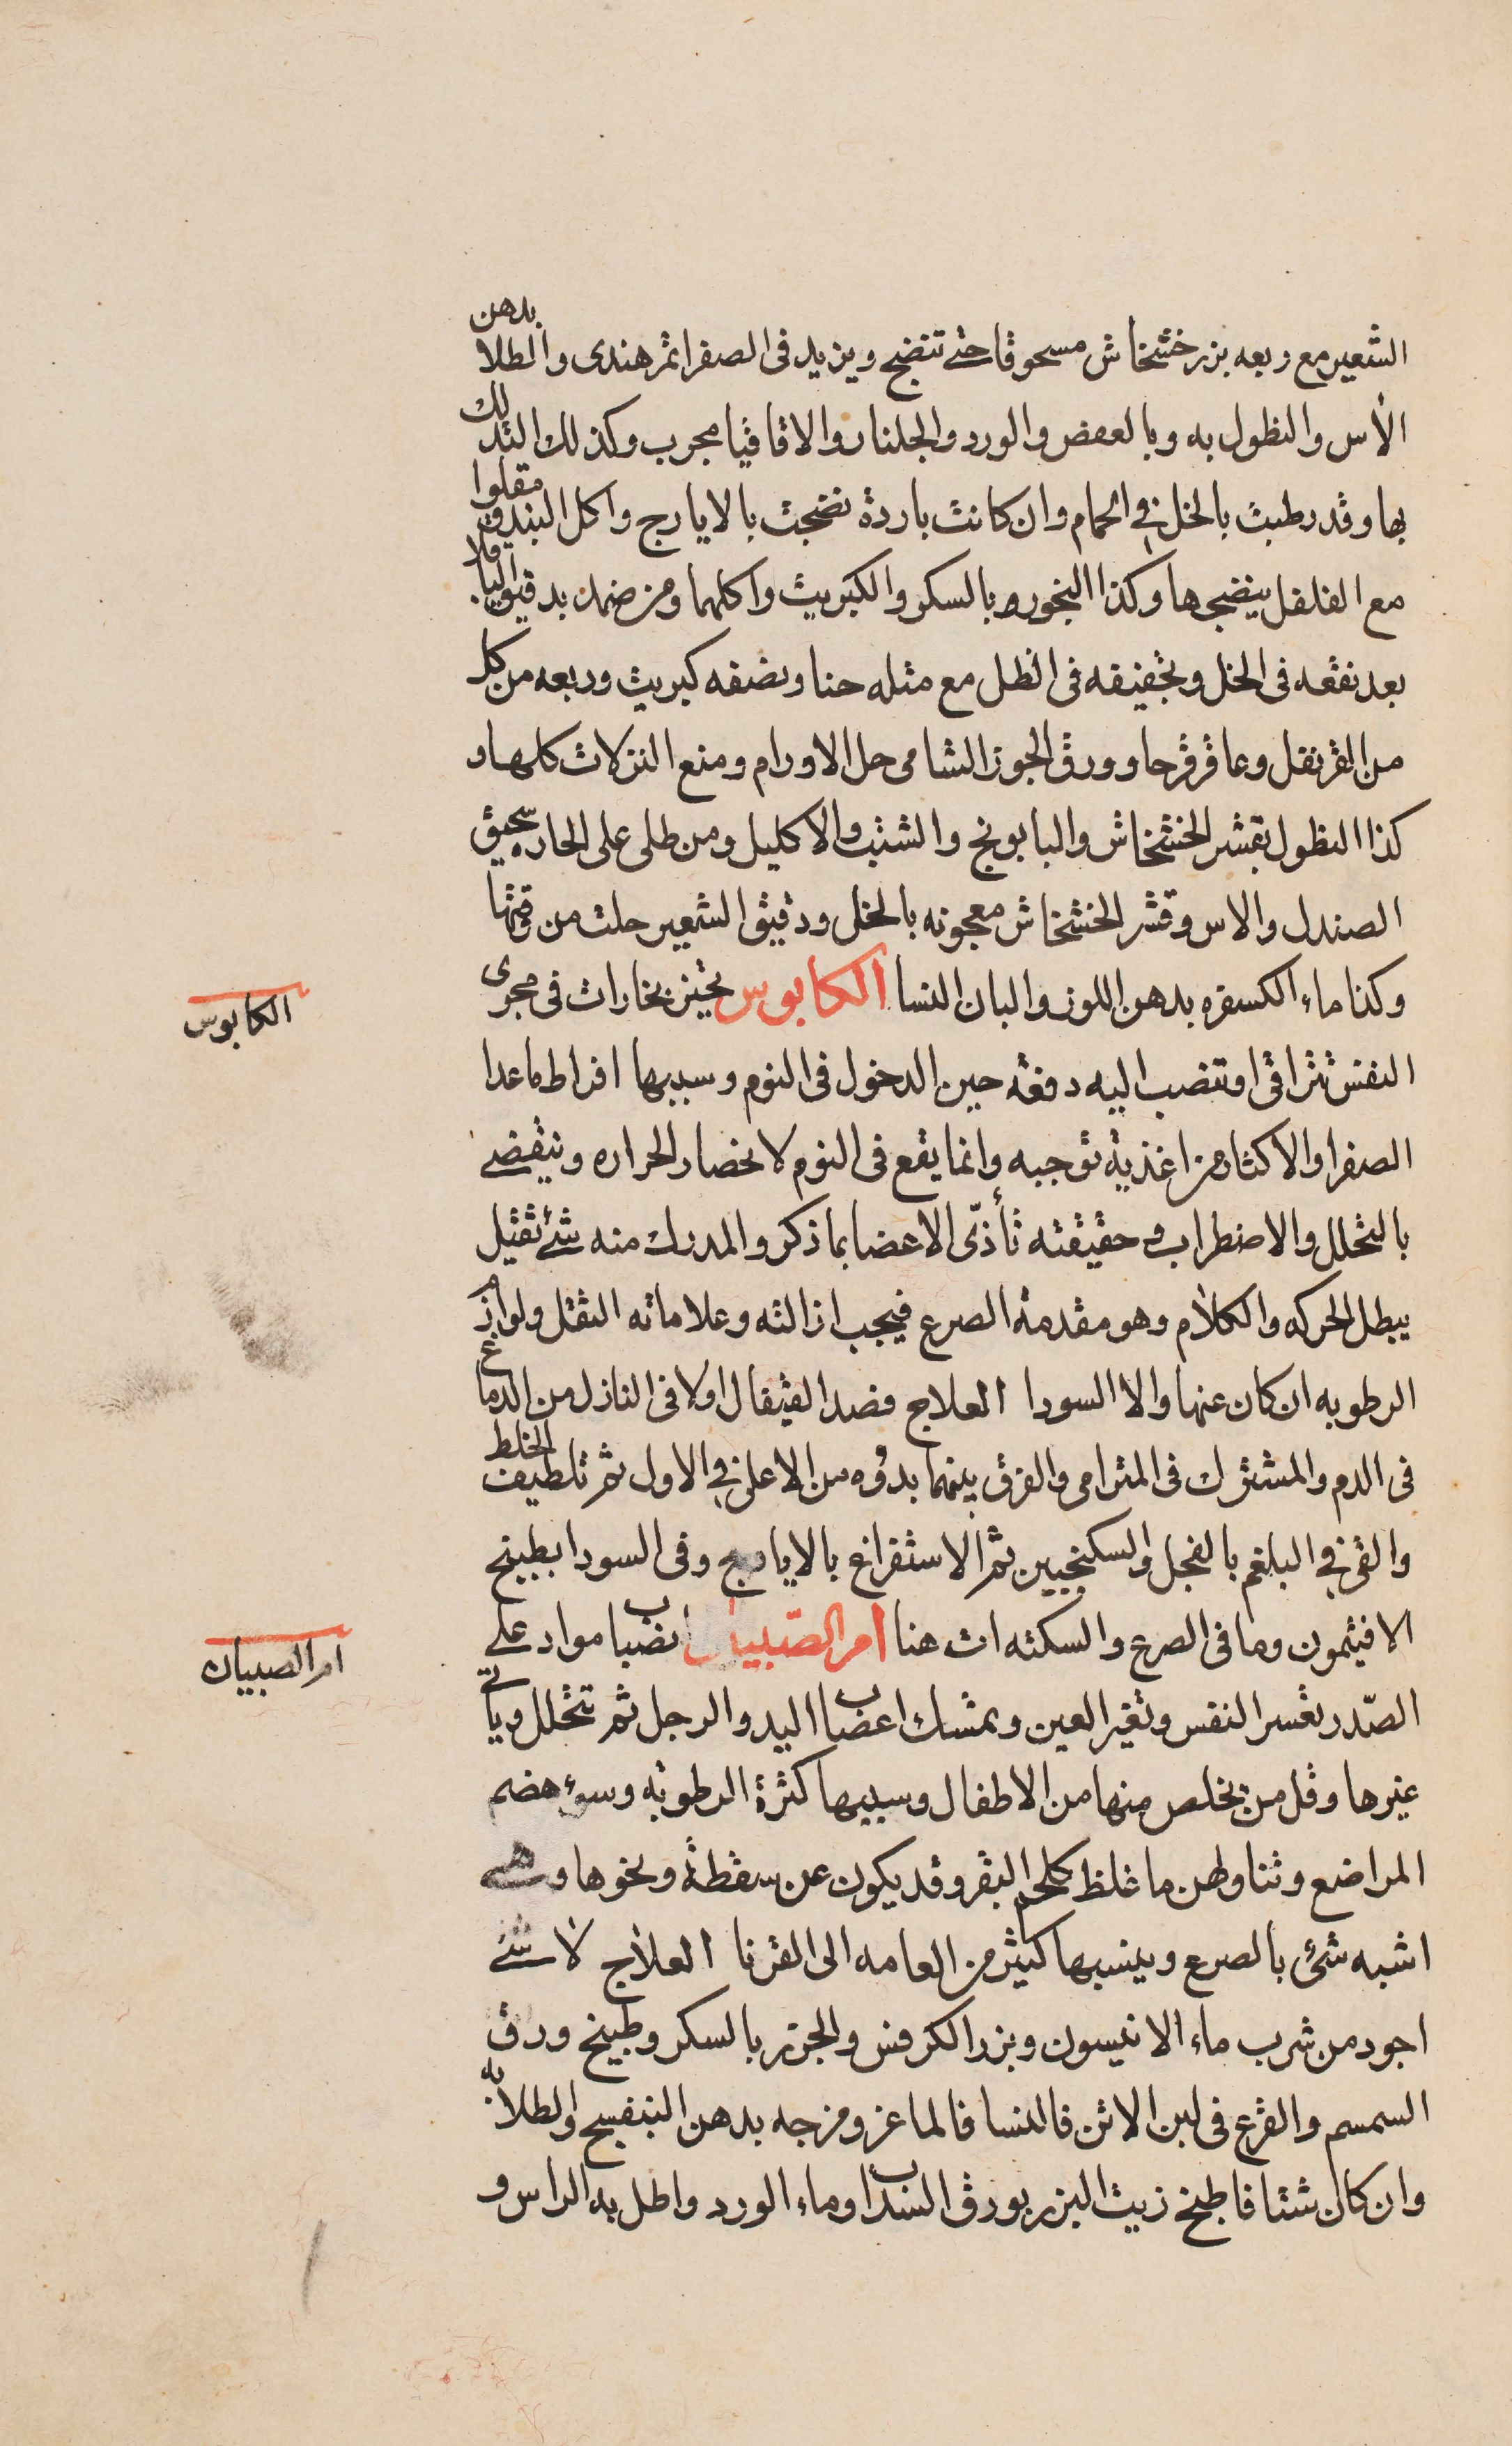 الشعير مع ربعه بزر خشخاش مسحوقا حتى تنضج ويزيد فى الصفرا تمر هندى والطلا بدهن
الاس والنطول به وبالعفص والورد والجلنار والاقاقيا مجرب وكذلك التدلك
بها وقد رطبت بالخل فى الحمام وان كانت باردة نضجت بالايارج واكل البندق مقلوا
مع الفلفل ينضجها وكذا البخور بالسكر والكبريت واكلهما ومن ضمد بدقيق الباقلا
بعد نقعه فى الخل وتجفيفه فى الظل مع مثله حنا ونصفه كبريت وربعه من كل
من القرنفل وعاقرقرحا وورق الجوز الشامى حل الاورام ومنع النزلات كلها و
كذا النطول بقشر الخشخاش والبابونج والشبت والاكليل ومن طلى على الحاره سحيق
الصندل والاس وقشر الخشخاش معجونه بالخل ودقيق الشعير حلت من وقتها
وكذا ماء الكسفره بدهن اللوز والبان النسا الكابوس تحيز بخارات فى مجرى
النفس تتراقى او تنصب اليه دفعه حين الدخول فى النوم وسببها افراط ما عدا
الصفرا والاكثار من اغذية توجبه وانما يقع فى النوم لانحصار الحراره وينقضى
بالتحلل والاضطراب وحقيقته تأذّى الاعضا بما ذكر والمدرك منه شئ ثقيل
يبطل الحركه والكلام وهو مقدمة الصرع فيجب ازالته وعلاماته الثقل ولوازم
الرطوبه ان كان عنها والا السودا العلاج فصد القيفال اولا فى النازل من الدماغ
فى الدم والمشترك فى المترامى والفرق بينهما بدؤه من الاعلى فى الاول ثم تلطيف الخلط
والقى فى البلغم بالفجل والسكنجبين ثم الاستفراغ بالايارج وفى السودا بطبيخ
الافيثمون وما فى الصرع والسكته ات هنا ام الصّبيان انصباب مواد على
الصّدر تعسر النفس وتغير العين وتمسك اعصاب اليد والرجل ثم تتحلل وياتى
غيرها وقل من تخلص منها من الاطفال وسببها كثرة الرطوبه وسوء هضم
المراضع وتناولهن ما غلظ كلحم البقر وقد يكون عن سقطة ونحوها وهى
اشبه شئ بالصرع وينسبها كثير من العامه الى القرنا العلاج لا شئ
اجود من شرب ماء الانيسون وبزر الكرفس والجزر بالسكر وطبيخ ورق
السمسم والقرع فى لبن الاتن فالنسا فالماعز ومزجه بدهن البنفسج والطلا به
وان كان شتا فاطبخ زيت البزر بورق السنداب وماء الورد واطل به الراس و
الكابوس
ام الصبيان